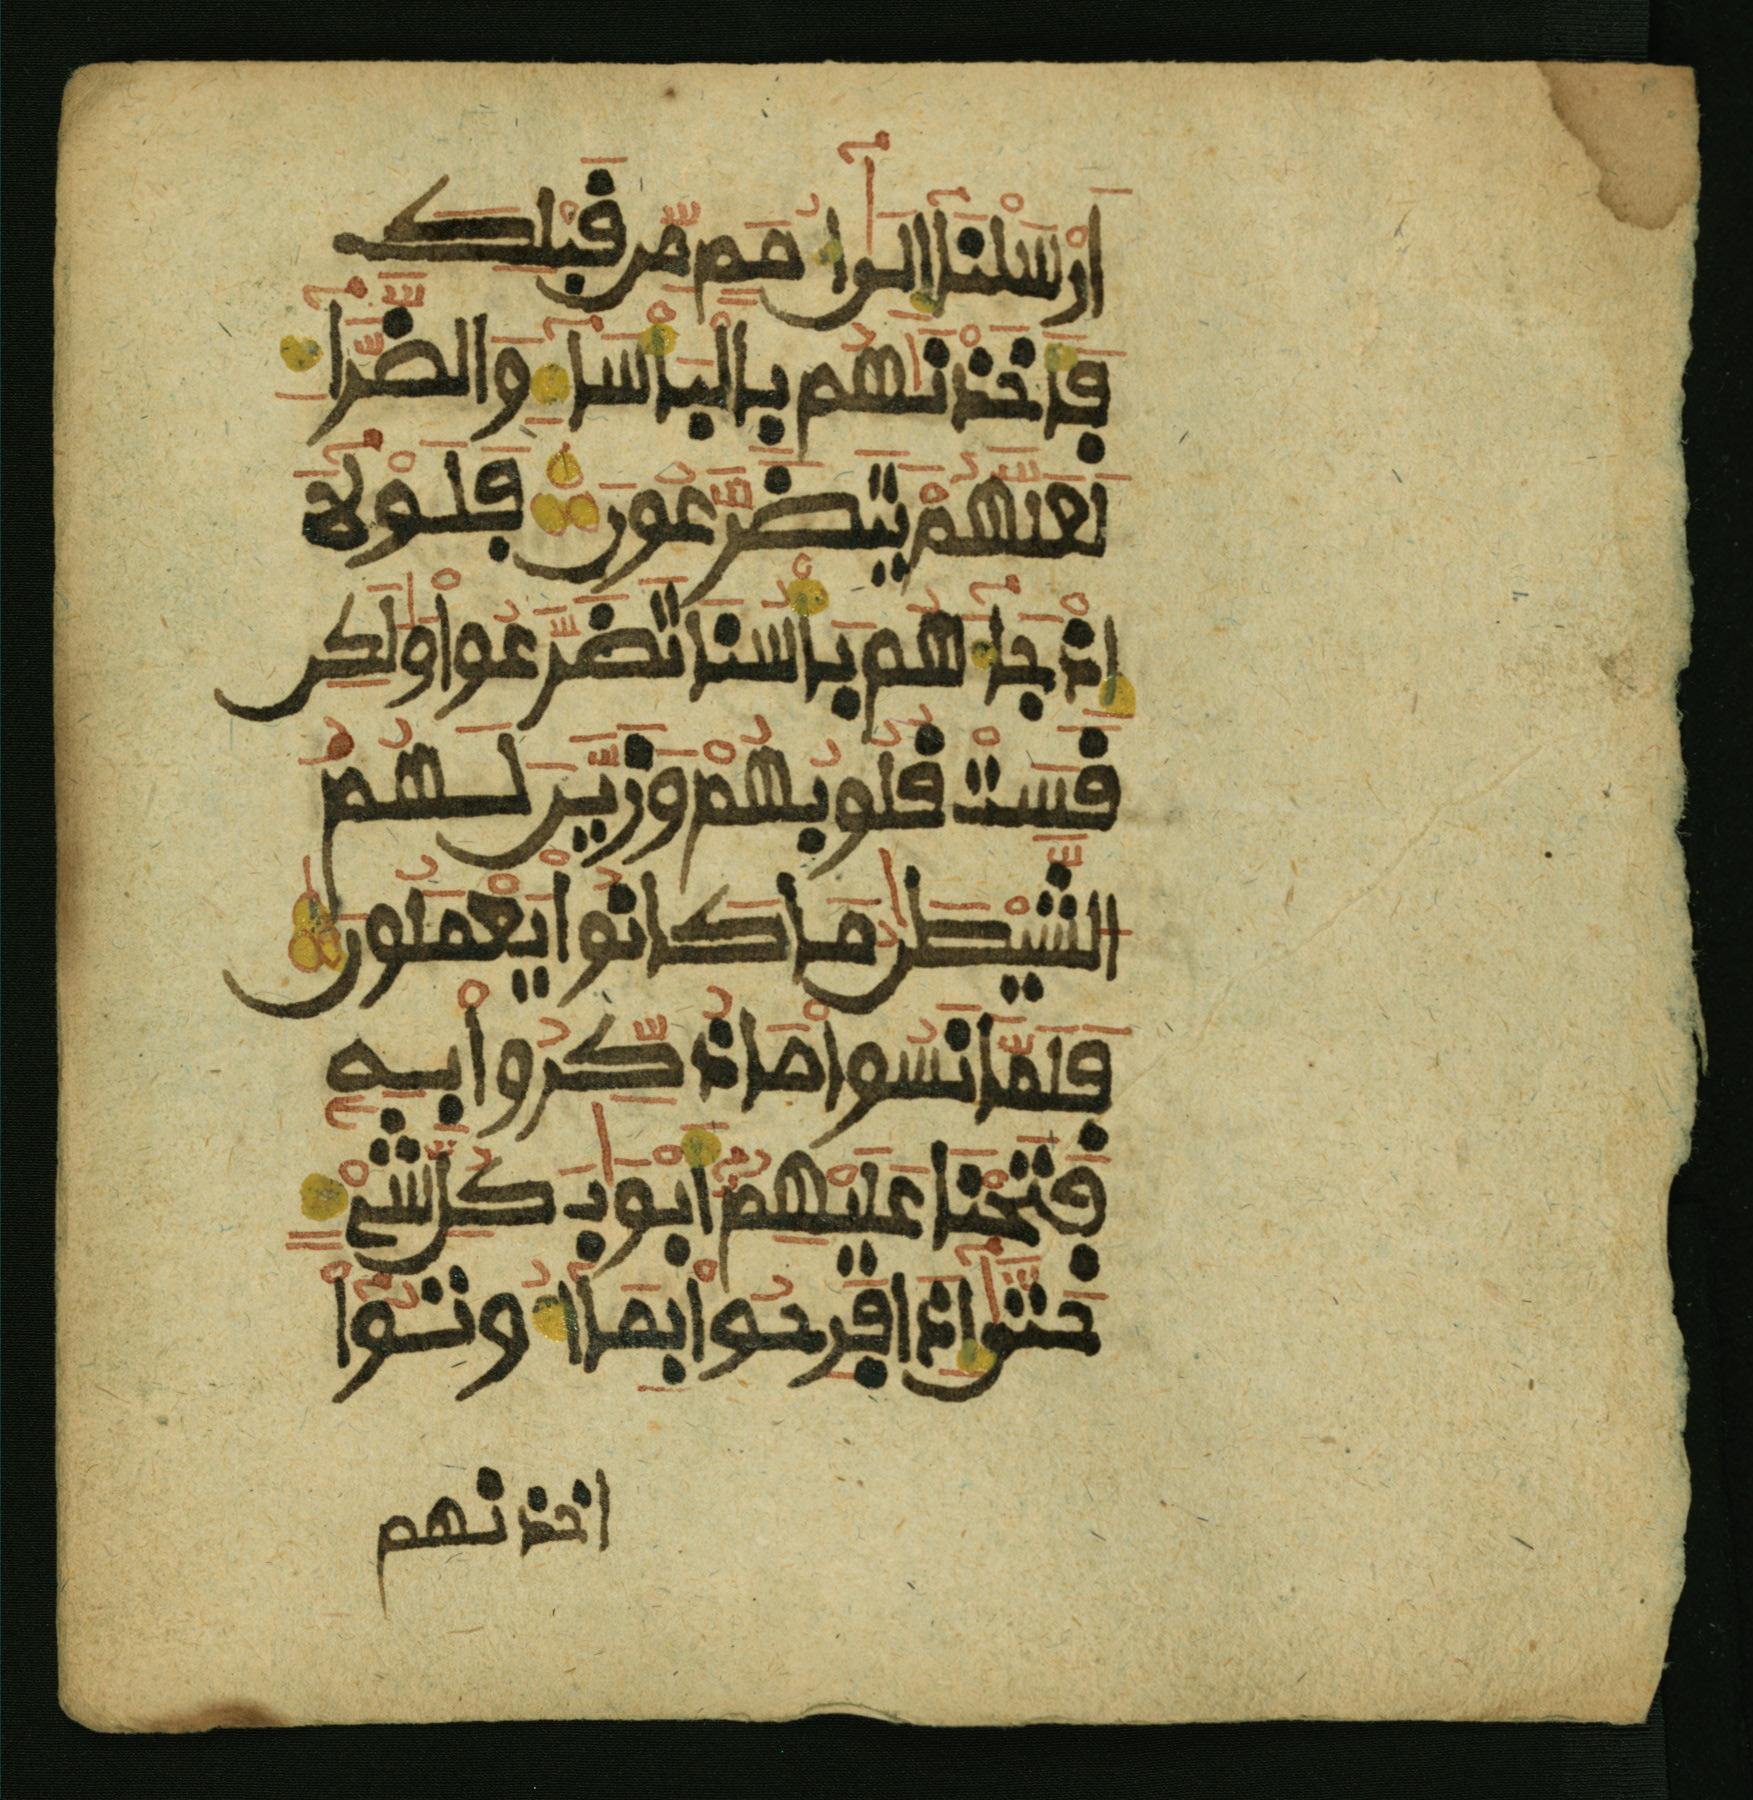 اَرْسَلْنَآ إِلَىٰٓ أُمَمٍ مِّن قَبْلِكَ
فَأَخَذْنَٰهُم بِالْبَأْسَآءِ وَالضَّرَّآءِ
لَعَلَّهُمْ يَتَضَرَّعُونَ فَلَوْلَآ
إِذْ جَآءَهُم بَأْسُنَا تَضَرَّعُواْ وَلَٰكِن
قَسَتْ قُلُوبُهُمْ وَزَيَّنَ لَهُمُ
الشَّيْطَٰنُ مَا كَانُواْ يَعْمَلُونَ
فَلَمَّا نَسُواْ مَا ذُكِّرُواْ بِهِ
فَتَحْنَا عَلَيْهِمُ أَبْوَٰبَ كُلِّ شَيْءٍ
حَتَّىٰٓ إِذَا فَرِحُواْ بِمَآ أُوتُواْ
اخذنهم